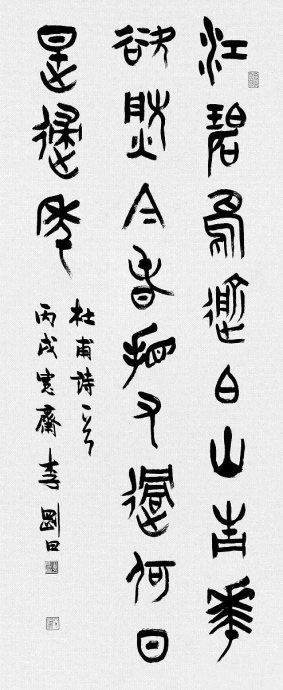 江碧鳥逾白山青華
欲然今春看又過何日
是歸年
杜甫詩一首
丙戌寬齋李剛田